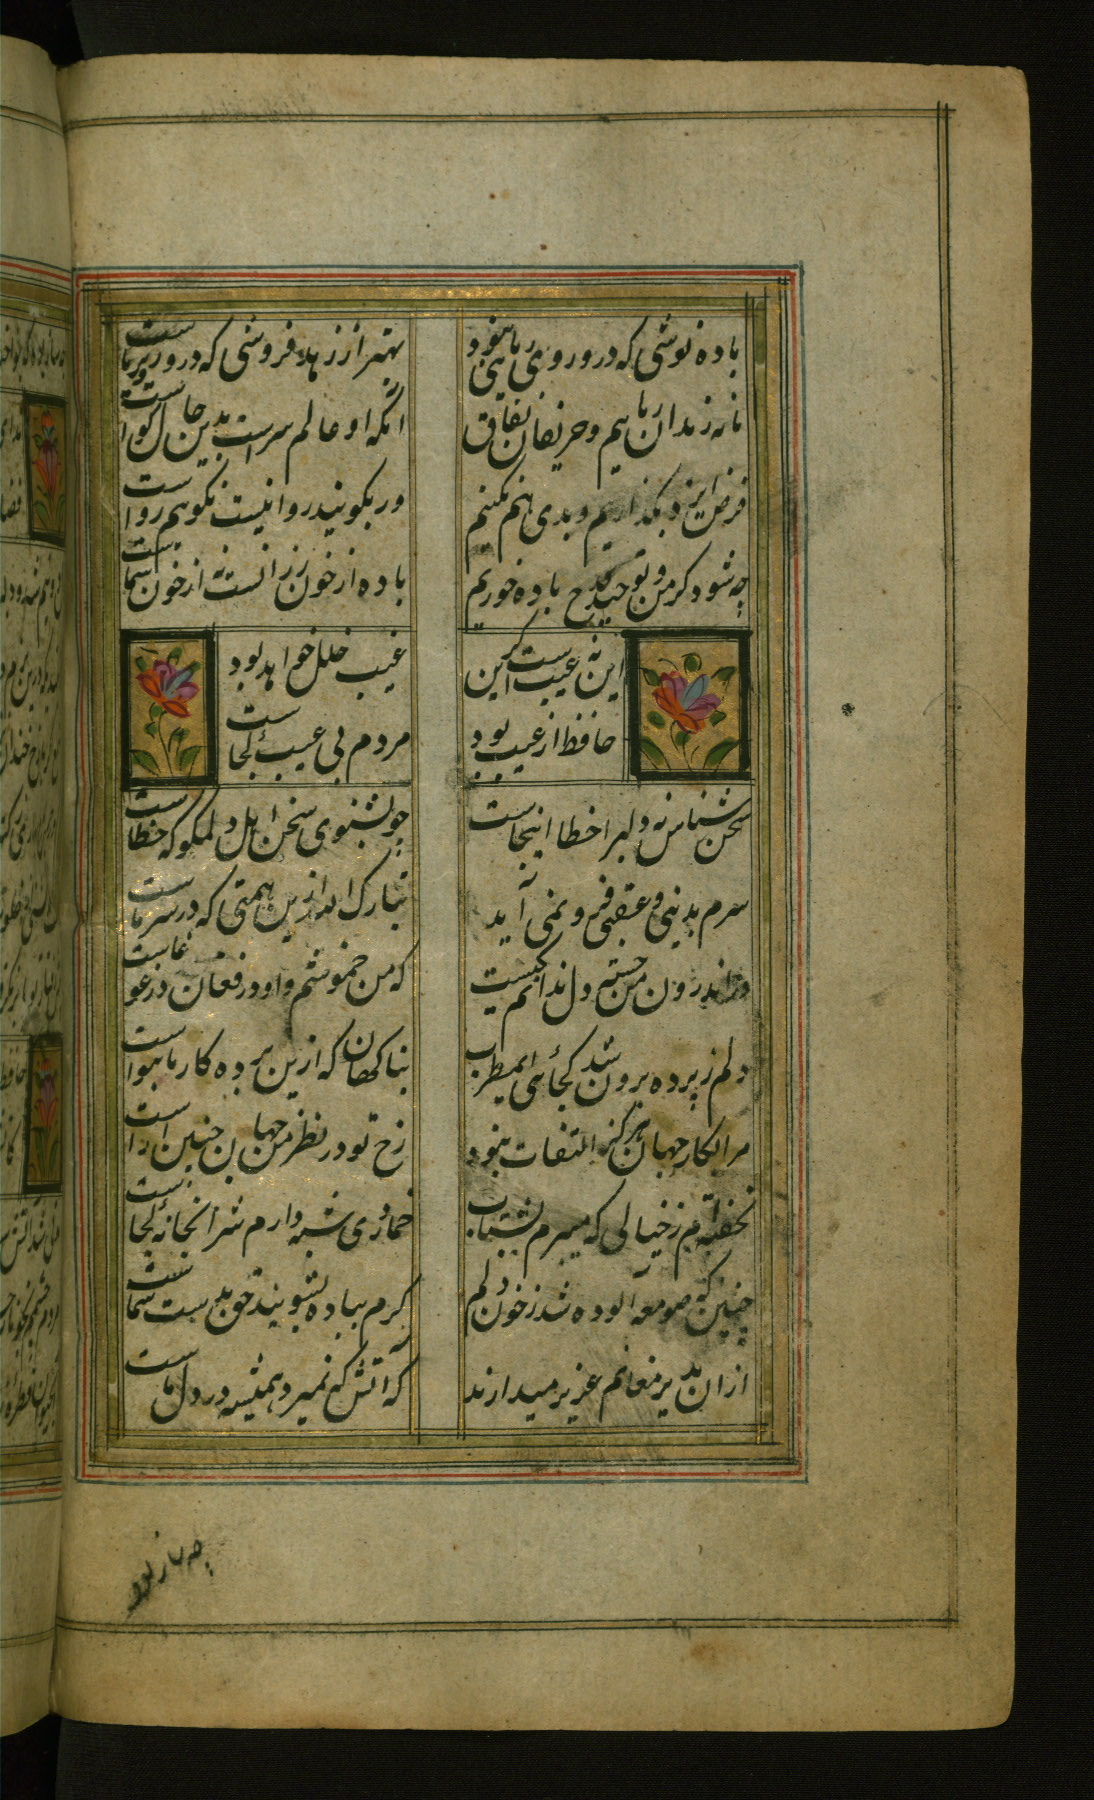 باده نوشی که درو روی ریائی نبود
بهتر از زهد فروشی که درو روی ریاست
ما نه رندان ریاییم و حریفان نفاق
آنکه او عالم سر است بدین حال گواست
فرض ایزد بگذاریم و بدی هم نکنیم
ور بگویند روا نیست نگوییم رواست
چه شود گر من و تو چند قدح باده خوریم
باده از خون رزانست نه از خون شماست
این نه عیب است کز این
عیب خلل خواهد بود
حافظ از عیب بود
مردم بی عیب کجاست
سخن شناس نه دلبرا خطا اینجاست
چو بشنوی سخن اهل دل مگو که خطاست
سرم بدنیی و عقبی فرو نمی آید
تبارک الله ازین همتی که در سر ماست
در اندرون من خسته دل ندانم کیست
که من خموشم و او در فغان و در غوغاست
دلم ز پرده برون شد کجائی ای مطرب
بنا کهان که ازین پرده کار ما بنواست
مرا بکار جهان هرگز التفات نبود
رخ تو در نظر من جهان چنین آراست
نخفته ام ز خیالی که میبرم شبها
خمار دی شبه دارم شرابخانه کجاست
چنین که صومعه آلوده شد ز خون دلم
گرم بباده بشویند حق بدست شماست
از آن بدیر مغانم عزیز میدارند
که آتشی که نمیرد همیشه در دل ماست
چه ساز بود